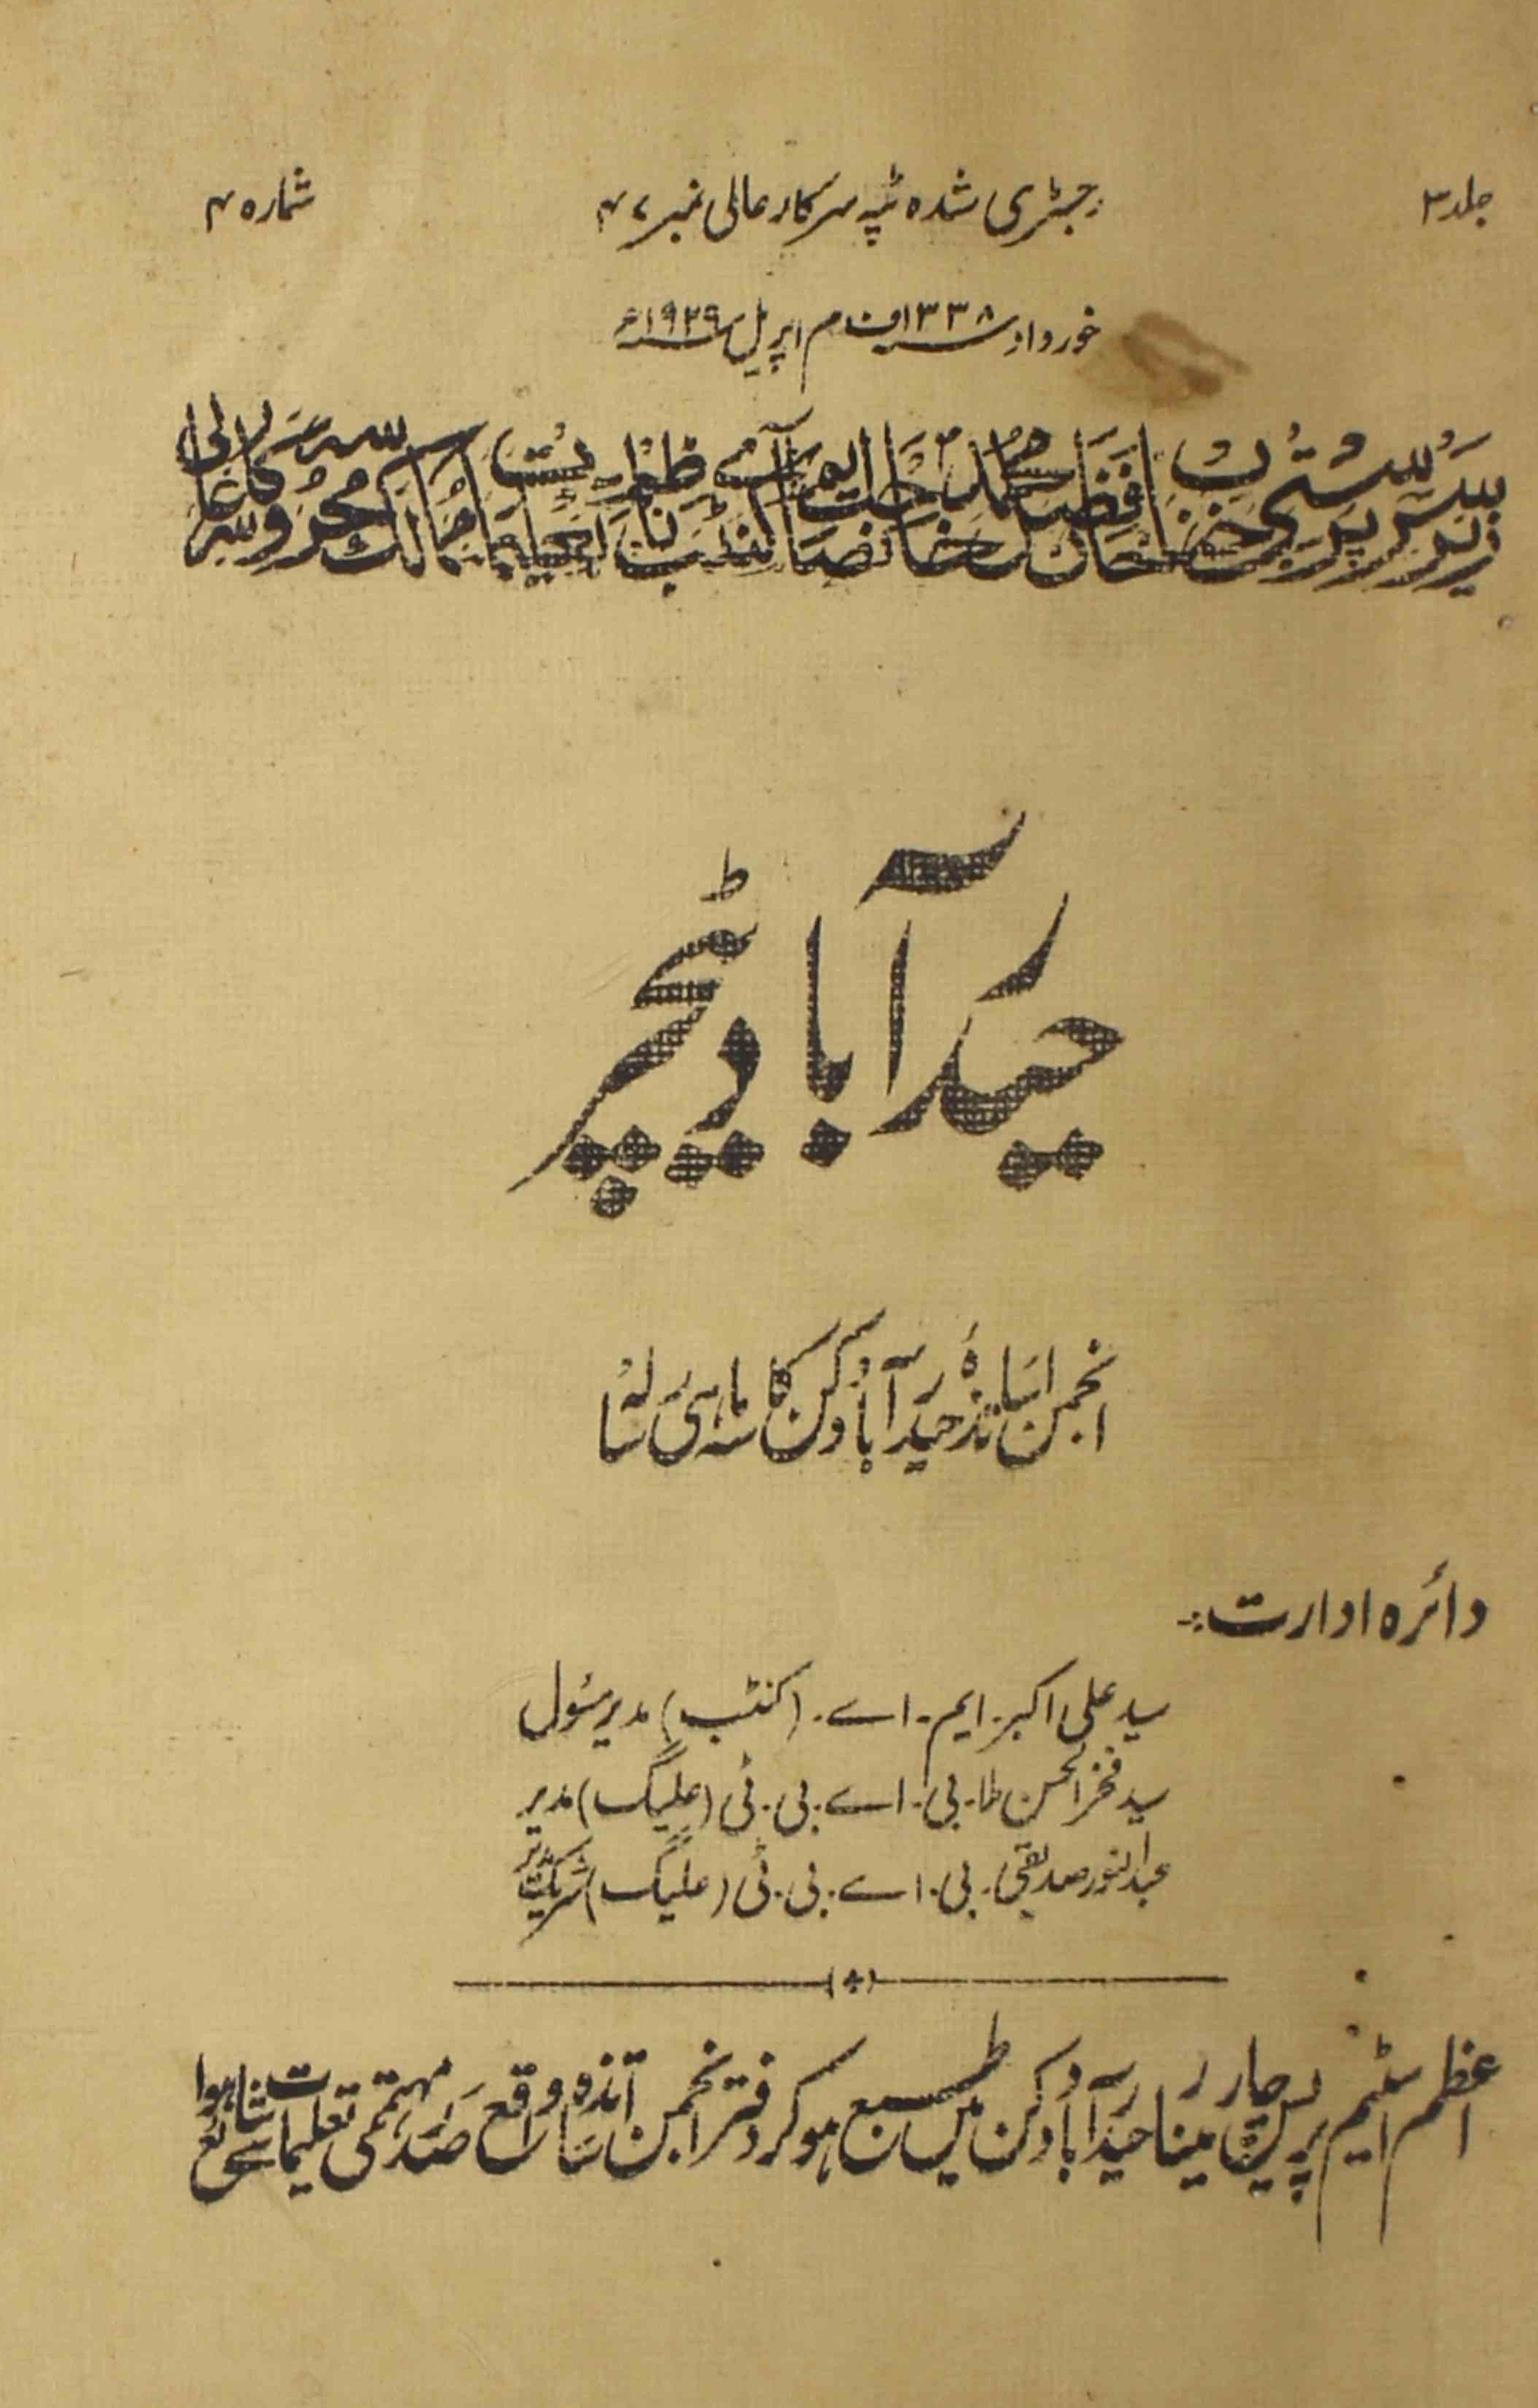 جلد ۳
رجسٹری شدہ ٹپہ سرکار عالی نمبر ۴۷
شمارہ ۴
خورداد سنہ ۱۳۳۸ف م اپریل سنہ ۱۹۲۹ء
زیر سرپرستی جناب خان فضل محمد خان صاحب ایم اے ناظم تعلیمات ممالک محروسہ سرکار عالی
حیدرآباد ٹیچر
انجمن اساتذہ حیدرآباد دکن کا سہ ماہی رسالہ
دائرہ ادارت:-
سید علی اکبر۔ ایم۔ اے۔ (کنٹب) مدیر مسئول
سید فخر الحسن ملا۔ بی۔ اے۔ بی۔ ٹی (علیگ) مدیر
عبدالنور صدیقی۔ بی۔ اے۔ بی۔ ٹی (علیگ) شریک مدیر
اعظم اسٹیم پریس چار مینار حیدرآباد دکن میں طبع ہو کر دفتر انجمن اساتذہ واقع صدر مہتممی تعلیمات سے شائع ہوا